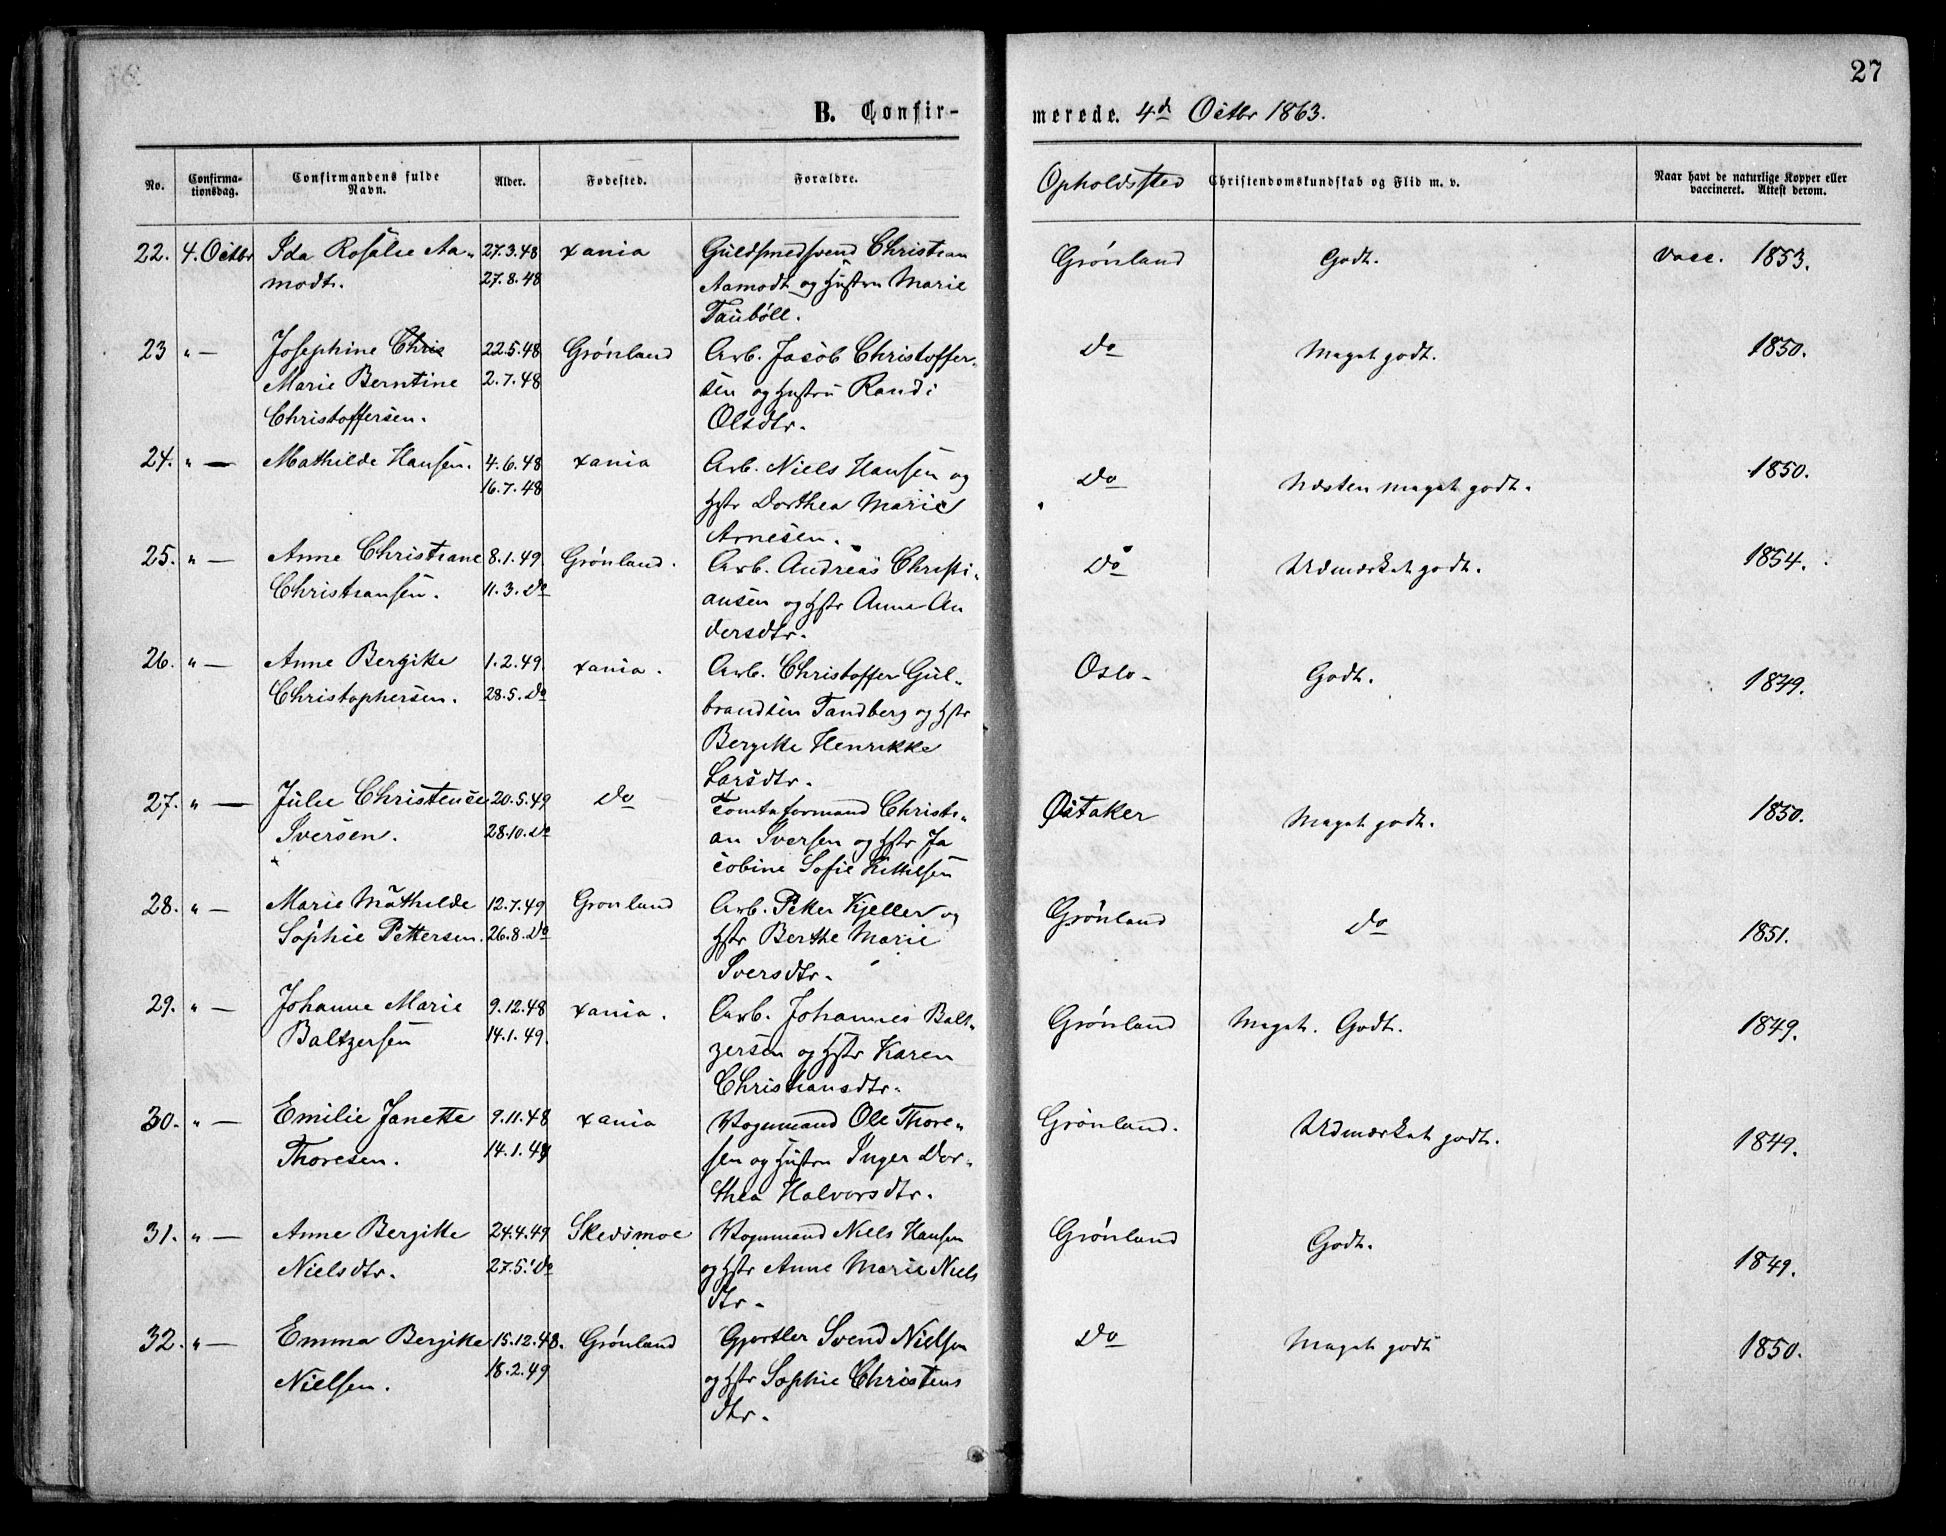 27
B. Confir-
merede. 4d Octbr 1863.
No.
Confirma-
tionsdag.
Confirmandens fulde
Navn.
Alder.
Fødested.
Forældre.
Opholdssted
Christendomskundskab og Flid m. v.
Naar havt de naturlige Kopper eller
vaccineret. Attest derom.
22. 4. Octbr Ida Rosalie Aa- 27.3.48 Xania Guldsmedsvend Christian Grønland Godt. Vacc. 1853.
modt. 27.8.48 Aamodt og Hustru Marie
Taubøll.
23 " — Josephine Chris 22.5.48 Grønland Arb. Jacob Christoffer- Do Meget godt. 1850.
Marie Berntine 2.7.48 sen og Hustru Randi
Christoffersen. Olsdtr.
24. " — Mathilde Hansen. 4.6.48 Xania Arb. Niels Hansen og Do Næsten meget godt. 1850.
16.7.48 Hstr Dorthea Marie
Arnesen.
25. " — Anne Christiane 8.1.49 Grønland. Arb. Andreas Christi- Do Udmærket godt. 1854.
Christiansen. 11.3. Do ansen og Hstr Anna An
dersdtr.
26. " — Anne Bergitte 1.2.49. Xania. Arb. Christoffer Gul- Oslo- Godt. 1849.
Christophersen. 28.5. Do brandsen Tandberg og Hstr
Bergitte Henrikke
Larsdtr.
27. " — Julie Christense 20.5.49 Do Tomteformand Christi- Østaker Meget godt. 1850.
Iversen. 28.10. Do an Iversen og Hstr Ja
cobine Sofie Kittilsen
28. " — Marie Mathilde 12.7.49 Grønland Arb. Petter Kjeller og Grønland Do 1851.
Sophie Pettersen. 26.8. Do Hstr Berthe Marie
Iversdtr.
29. " — Johanne Marie 9.12.48 Xania. Arb. Johannes Balt- Grønland Meget. Godt. 1849.
Baltzersen 14.1.49. zersen og Hstr Karen
Christiansdtr.
30. " — Emilie Janette 9.11.48 Xania Vognmand Ole Thore- Grønland. Udmærket godt. 1849.
Thoresen. 14.1.49 sen og Hustru Inger Dor-
thea Halvorsdtr.
31. " — Anne Bergitte 24.4.49 Skedsmoe Vognmand Niels Hansen Grønland Godt. 1849.
Nielsdtr. 27.5. Do og Hstr Anne Marie Niels
dtr.
32. " — Emma Bergitte 15.12.48. Grønland Gjørtler Svend Nielsen Do Meget godt 1850.
Nielsen. 18.2.49 og Hstr Sophie Christens
dtr.